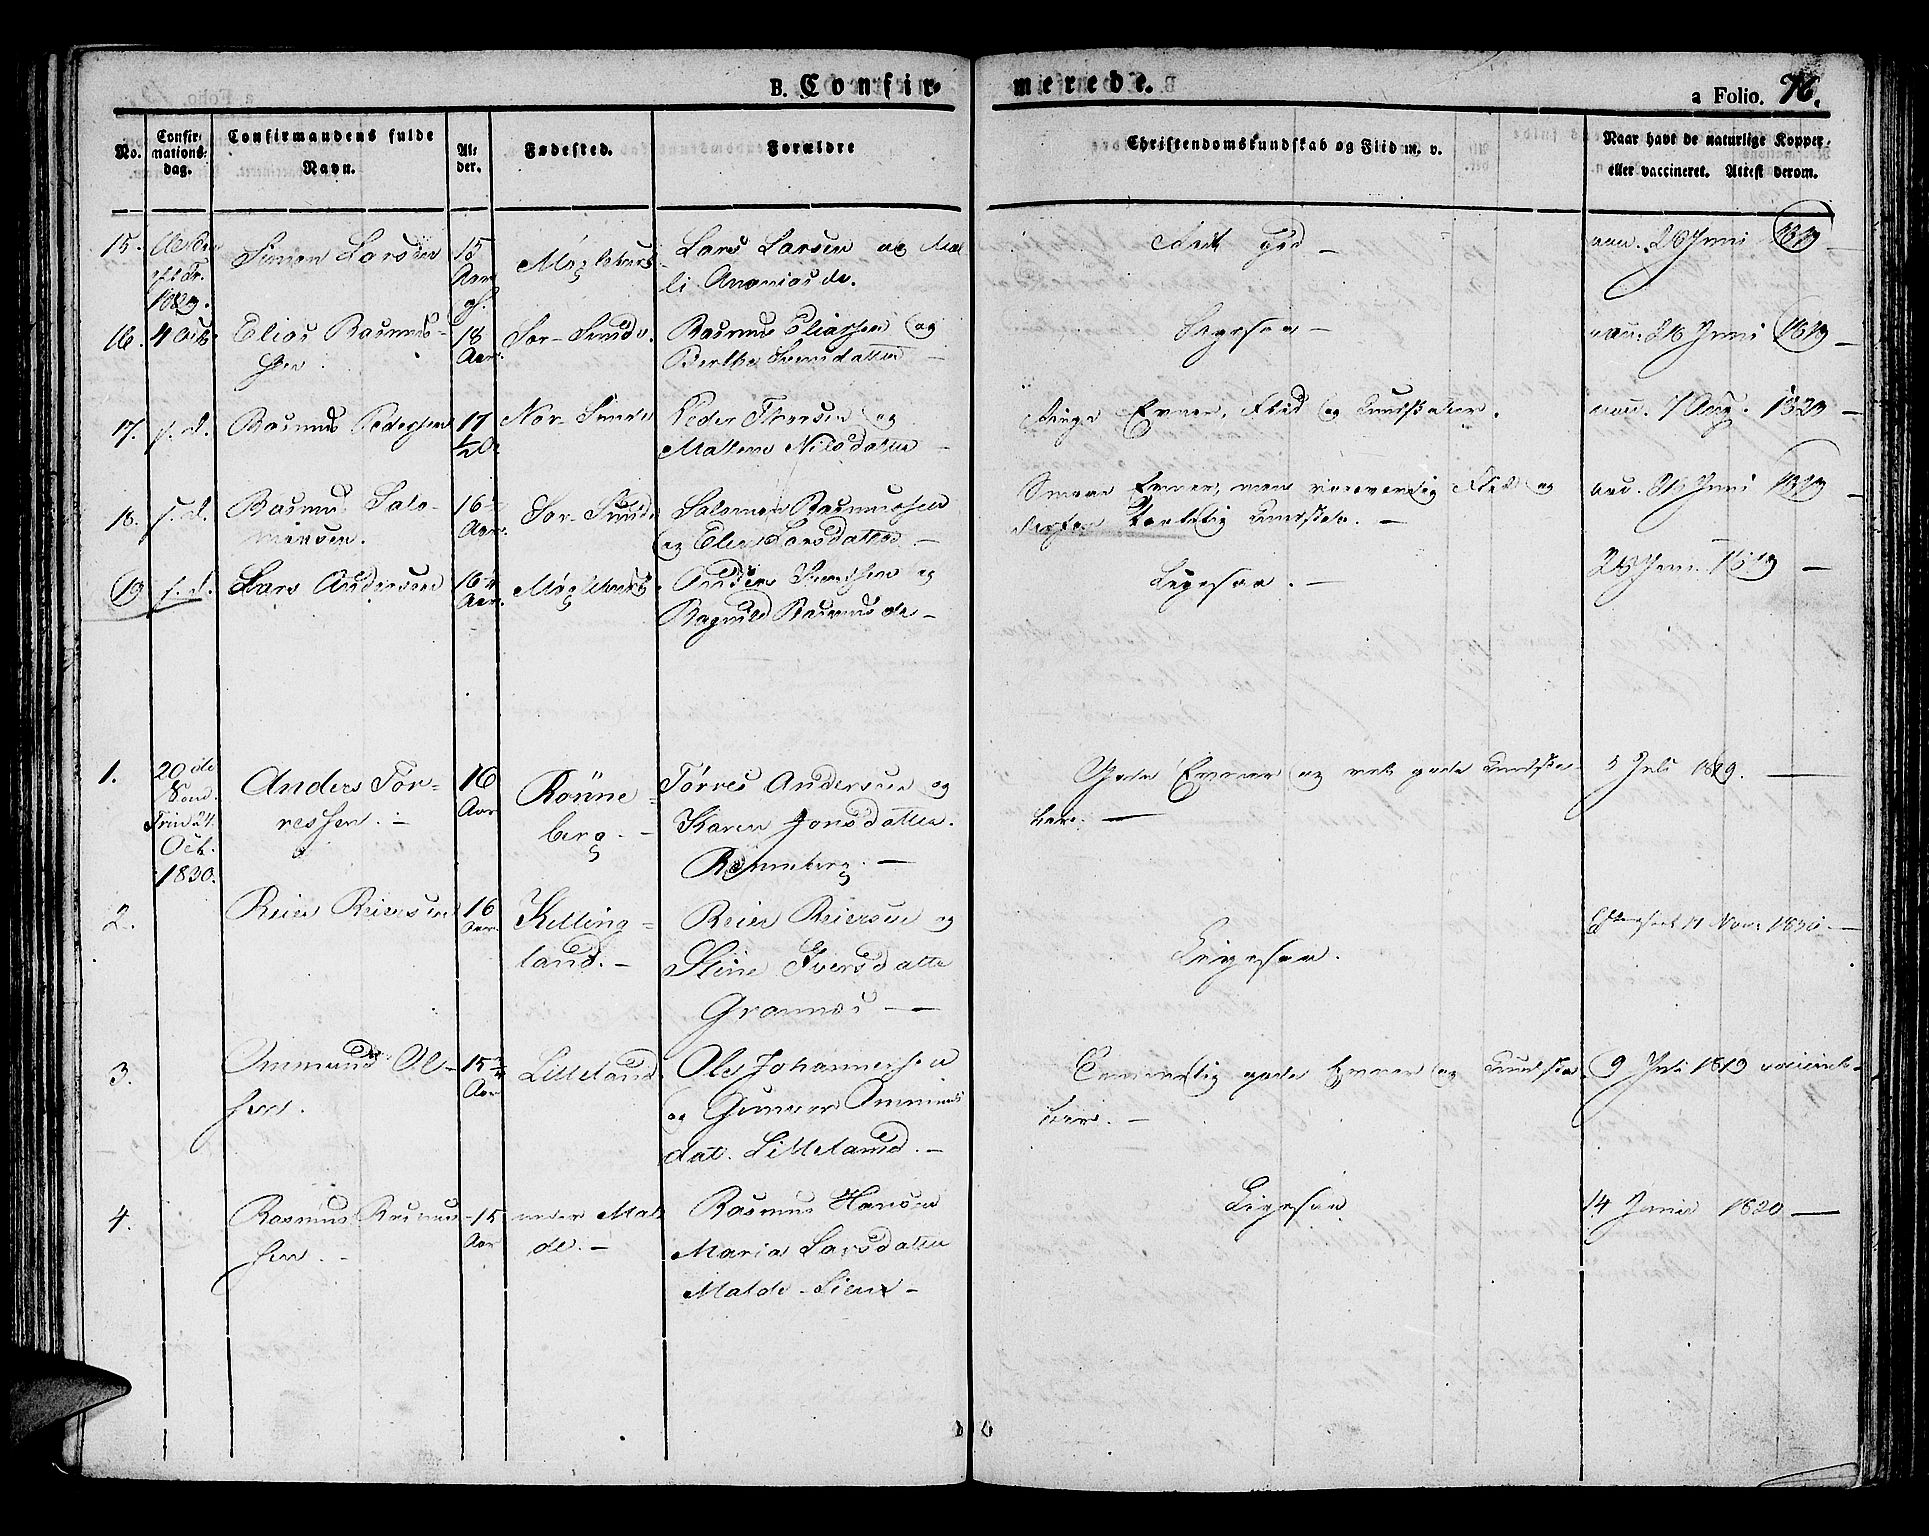 B. Confir-
merede.
a Folio. 76.
No.
Confir-
mations-
dag.
Confirmandens fulde
Navn.
Al-
der.
Fødested.
Forældre
Christendomskundskab og Flid m. v.
Naar havt de naturlige Kopper
eller vaccineret. Attest derom.
15.
1829.
Simon Larsen
15
Aar
Møglebust
Lars Larsen og Mal-
li Ananiasde.
26 Juni
16.
4 Oct.
Elias Rasmus-
sen
18
Aar.
Sør-Sunde.
Rasmus Eliassen og
Berthe Svensdatter
Ligesaa
26 Juni 1819
17.
s. d.
Rasmus Pedersen
17
1/2
Nor-Sunde
Peder Thorsen og
Malene Nilsdatter
Ringe Evner, Flid og Kundskaber.
7 Aug. 1823
18.
s. d.
Rasmus Salo-
monsen.
16
Aar.
Sør-Sunde
Salomon Rasmussen
og Elen Larsdatter
Smaae Evner, men Flid og
Kundskab.
26 Juni
19
s. d.
Lars Andersen
16
Aar.
Møglebust
Anders Svendsen og
Ragnild Rasmusde
Ligesaa.
26 Juni 1819
1.
20de
Sønd.
Trin 24.
Oct.
1830.
Anders Tør-
ressen.
16
Aar
Rönne-
berg.
Tørres Andersen og
Karen Jonsdatter.
Rönneberg.
Gode Evner og ret gode Kundska-
ber.
5 Juli 1819.
2.
Reier Reiersen
16
Aar
Kelling-
land.
Reier Reiersen og
Stine Iversdatter
Grannes
Ligesaa.
17 Nov. 1830
3.
Ommund Ol-
sen.
15 3/4
Aar
Lilleland
Ole Johannessen
og Gunnor Ommunds
dat. Lilleland.
gode Evner og Kundska-
ber.
9 Juli 1819
4.
Rasmus Rasmus-
sen.
15
Aar
nedre Mal-
de.
Rasmus Hansen
Maria Larsdatter
Malde
Ligesaa
14 Junii 1820